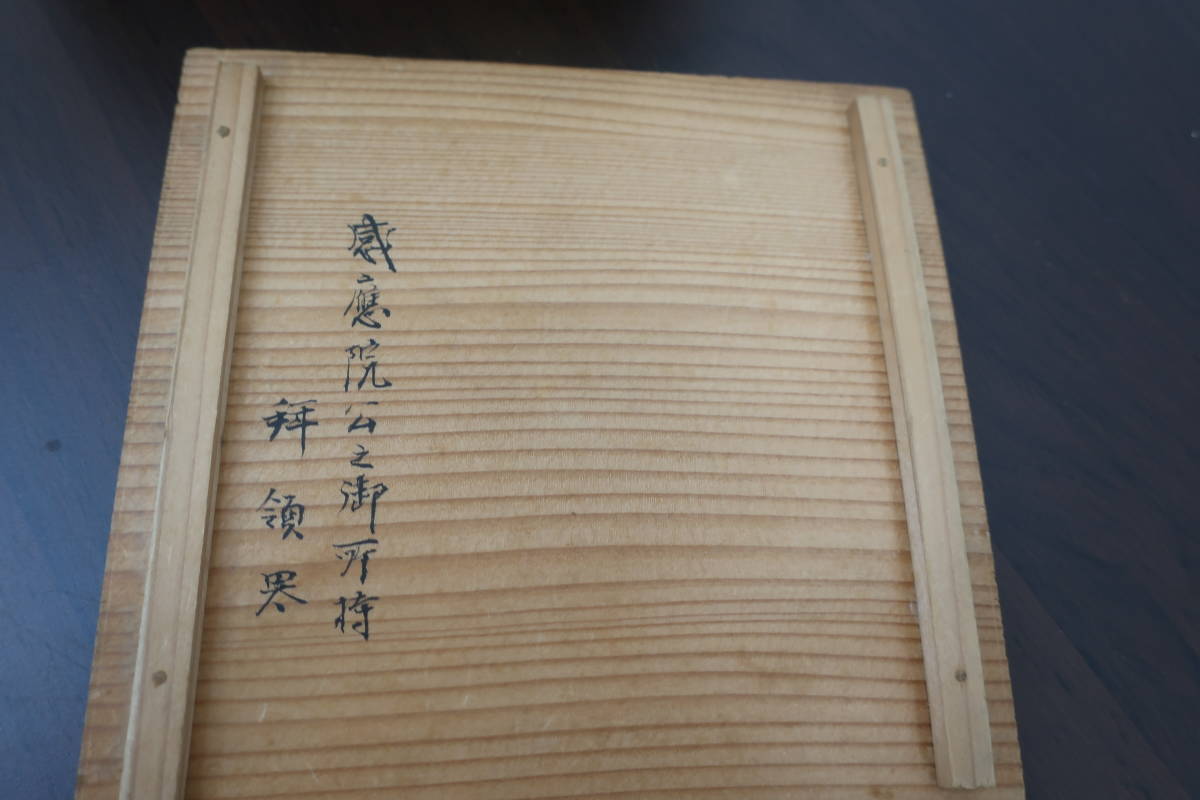 感應院公之御所持
拜領畧